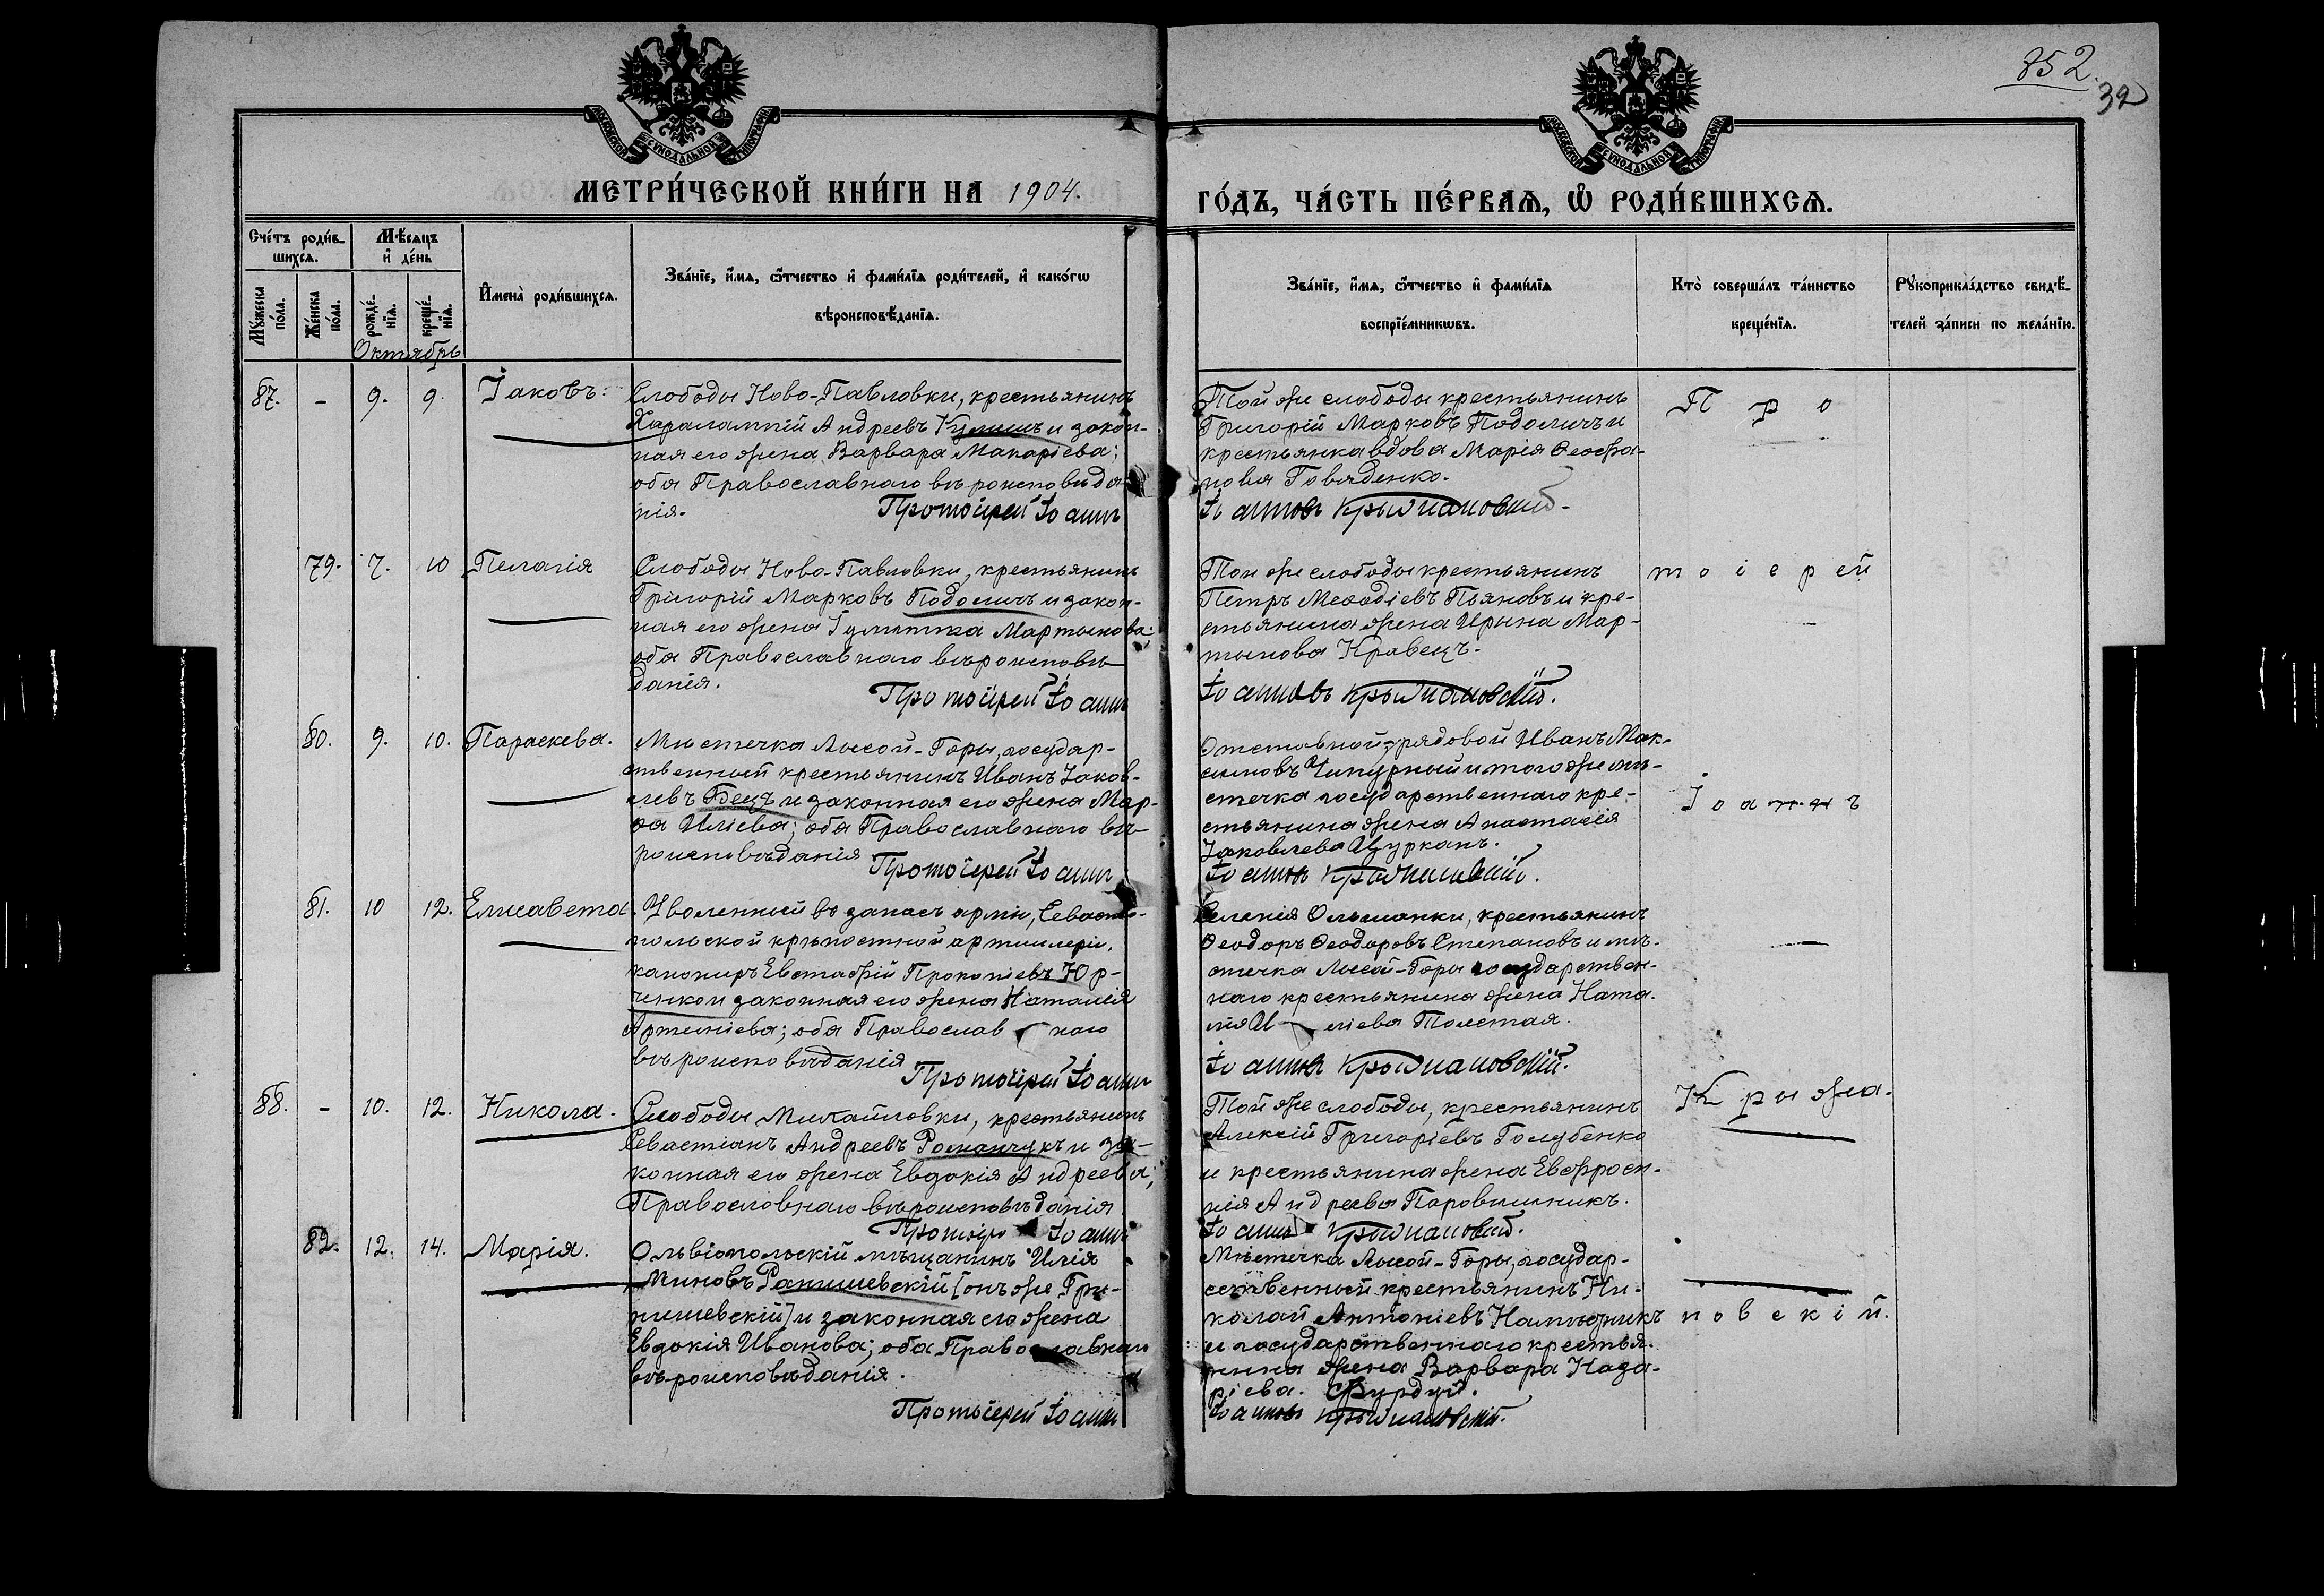 852.
32
МОСКОВСКОЙ СУНОДАЛЬНОЙ ТИПОГРАФІИ
МОСКОВСКОЙ СУНОДАЛЬНОЙ ТИПОГРАФІИ
МЕТРИ́ЧЕСКОЙ КНИ́ГИ НА 1904.
ГО́ДЪ, ЧА́СТЬ ПЕ́РВАѦ, Ѡ҆ РОДИ́ВШИХСѦ.
Сче́тъ роди́в-
шихсѧ.
Мꙋ́жеска по́ла.
Же́нска по́ла.
Мѣ́сѧцъ
и҆ де́нь
рожде́-
нїѧ.
креще́-
нїѧ.
Октябрь
И҆мена̀ роди́вшихсѧ.
Зва́нїе, и҆́мѧ, ѻ҆́тчество и҆ фами́лїѧ роди́телей, и҆ како́гѡ
вѣроисповѣ́данїѧ.
Зва́нїе, и҆́мѧ, ѻ҆́тчество и҆ фами́лїѧ
воспрїе́мникѡвъ.
Кто̀ соверша́лъ та́инство
креще́нїѧ.
Рꙋкоприкла́дство свидѣ́-
телей за́писи по жела́нїю.
87. - 9. 9. Іаковъ.
Слободы Ново-Павловки, крестьянинъ
Харалампій Андреевъ Кулишъ и закон-
ная его жена Варвара Макаріева;
оба Православнаго вѣроисповѣда-
нія.
Протоіерей Іоаннъ
Той же слободы крестьянинъ
Григорій Марковъ Подоличъ и
крестьянка вдова Марія Ѳеофа-
нова Говяденко.
Іоаннъ Крыжановскій.
79. 7. 10 Пелагія
Слободы Ново-Павловки, крестьянинъ
Григорій Марковъ Подоличъ и закон-
ная его жена Гулитта Мартынова:
оба Православнаго вѣроисповѣ-
данія.
Протоіерей Іоаннъ
Той же слободы крестьянинъ
Петръ Меѳодіевъ Пьяновъ и кре-
стьянина жена Ирина Мар-
тынова Кравецъ.
Іоаннъ Крыжановскій.
80. 9. 10. Параскева.
Мѣстечка Лысой-Горы, государ-
ственный крестьянинъ Иванъ Іаков-
левъ Бецъ и законная его жена Мар-
ѳа Иліева; оба Православнаго вѣ-
роисповѣданія
Протоіерей Іоаннъ
Отставной рядовой Иванъ Мак-
симовъ Чипурный и того же мѣ-
стечка государственнаго кре-
стьянина жена Анастасія
Іаковлева Цурканъ.
Іоаннъ Крыжановскій.
81. 10 12. Елисавета.
Уволенный въ запасъ арміи, Севасто-
польской крѣпостной артиллеріи,
канониръ Евстафій Прокопіевъ Юр-
ченко и законная его жена Наталія
Артеміева; оба Православнаго
вѣроисповѣданія
Протоіерей Іоаннъ
Селенія Ольшанки, крестьянинъ
Ѳеодоръ Ѳеодоровъ Степановъ и мѣ-
стечка Лысой-Горы государствен-
наго крестьянина жена Ната-
лія Иліева Толстая.
Іоаннъ Крыжановскій.
88. - 10. 12. Никола.
Слободы Михайловки, крестьянинъ
Севастіанъ Андреевъ Романчукъ и за-
конная его жена Евдокія Андреева;
Православнаго вѣроисповѣданія.
Протоіер Іоаннъ
Той же слободы, крестьянинъ
Алексій Григоріевъ Голубенко
и крестьянина жена Евфроси-
нія Андреева Паровишникъ.
Іоаннъ Крыжановскій.
82. 12. 14. Марія.
Ольвіопольскій мѣщанинъ Илія
Миновъ Ранишевскій [онъ же Гри-
нишевскій] и законная его жена
Евдокія Иванова; оба Православнаго
вѣроисповѣданія.
Протоіерей Іоаннъ
Мѣстечка Лысой-Горы, государ-
ственный крестьянинъ Ни-
колай Антоніевъ Намѣтникъ
и государственнаго крестья-
нина жена Варвара Наза-
ріева Фурдуй.
Іоаннъ Крыжановскій.
Про
тоіерей
Іоаннъ
Крыжа-
новскій.